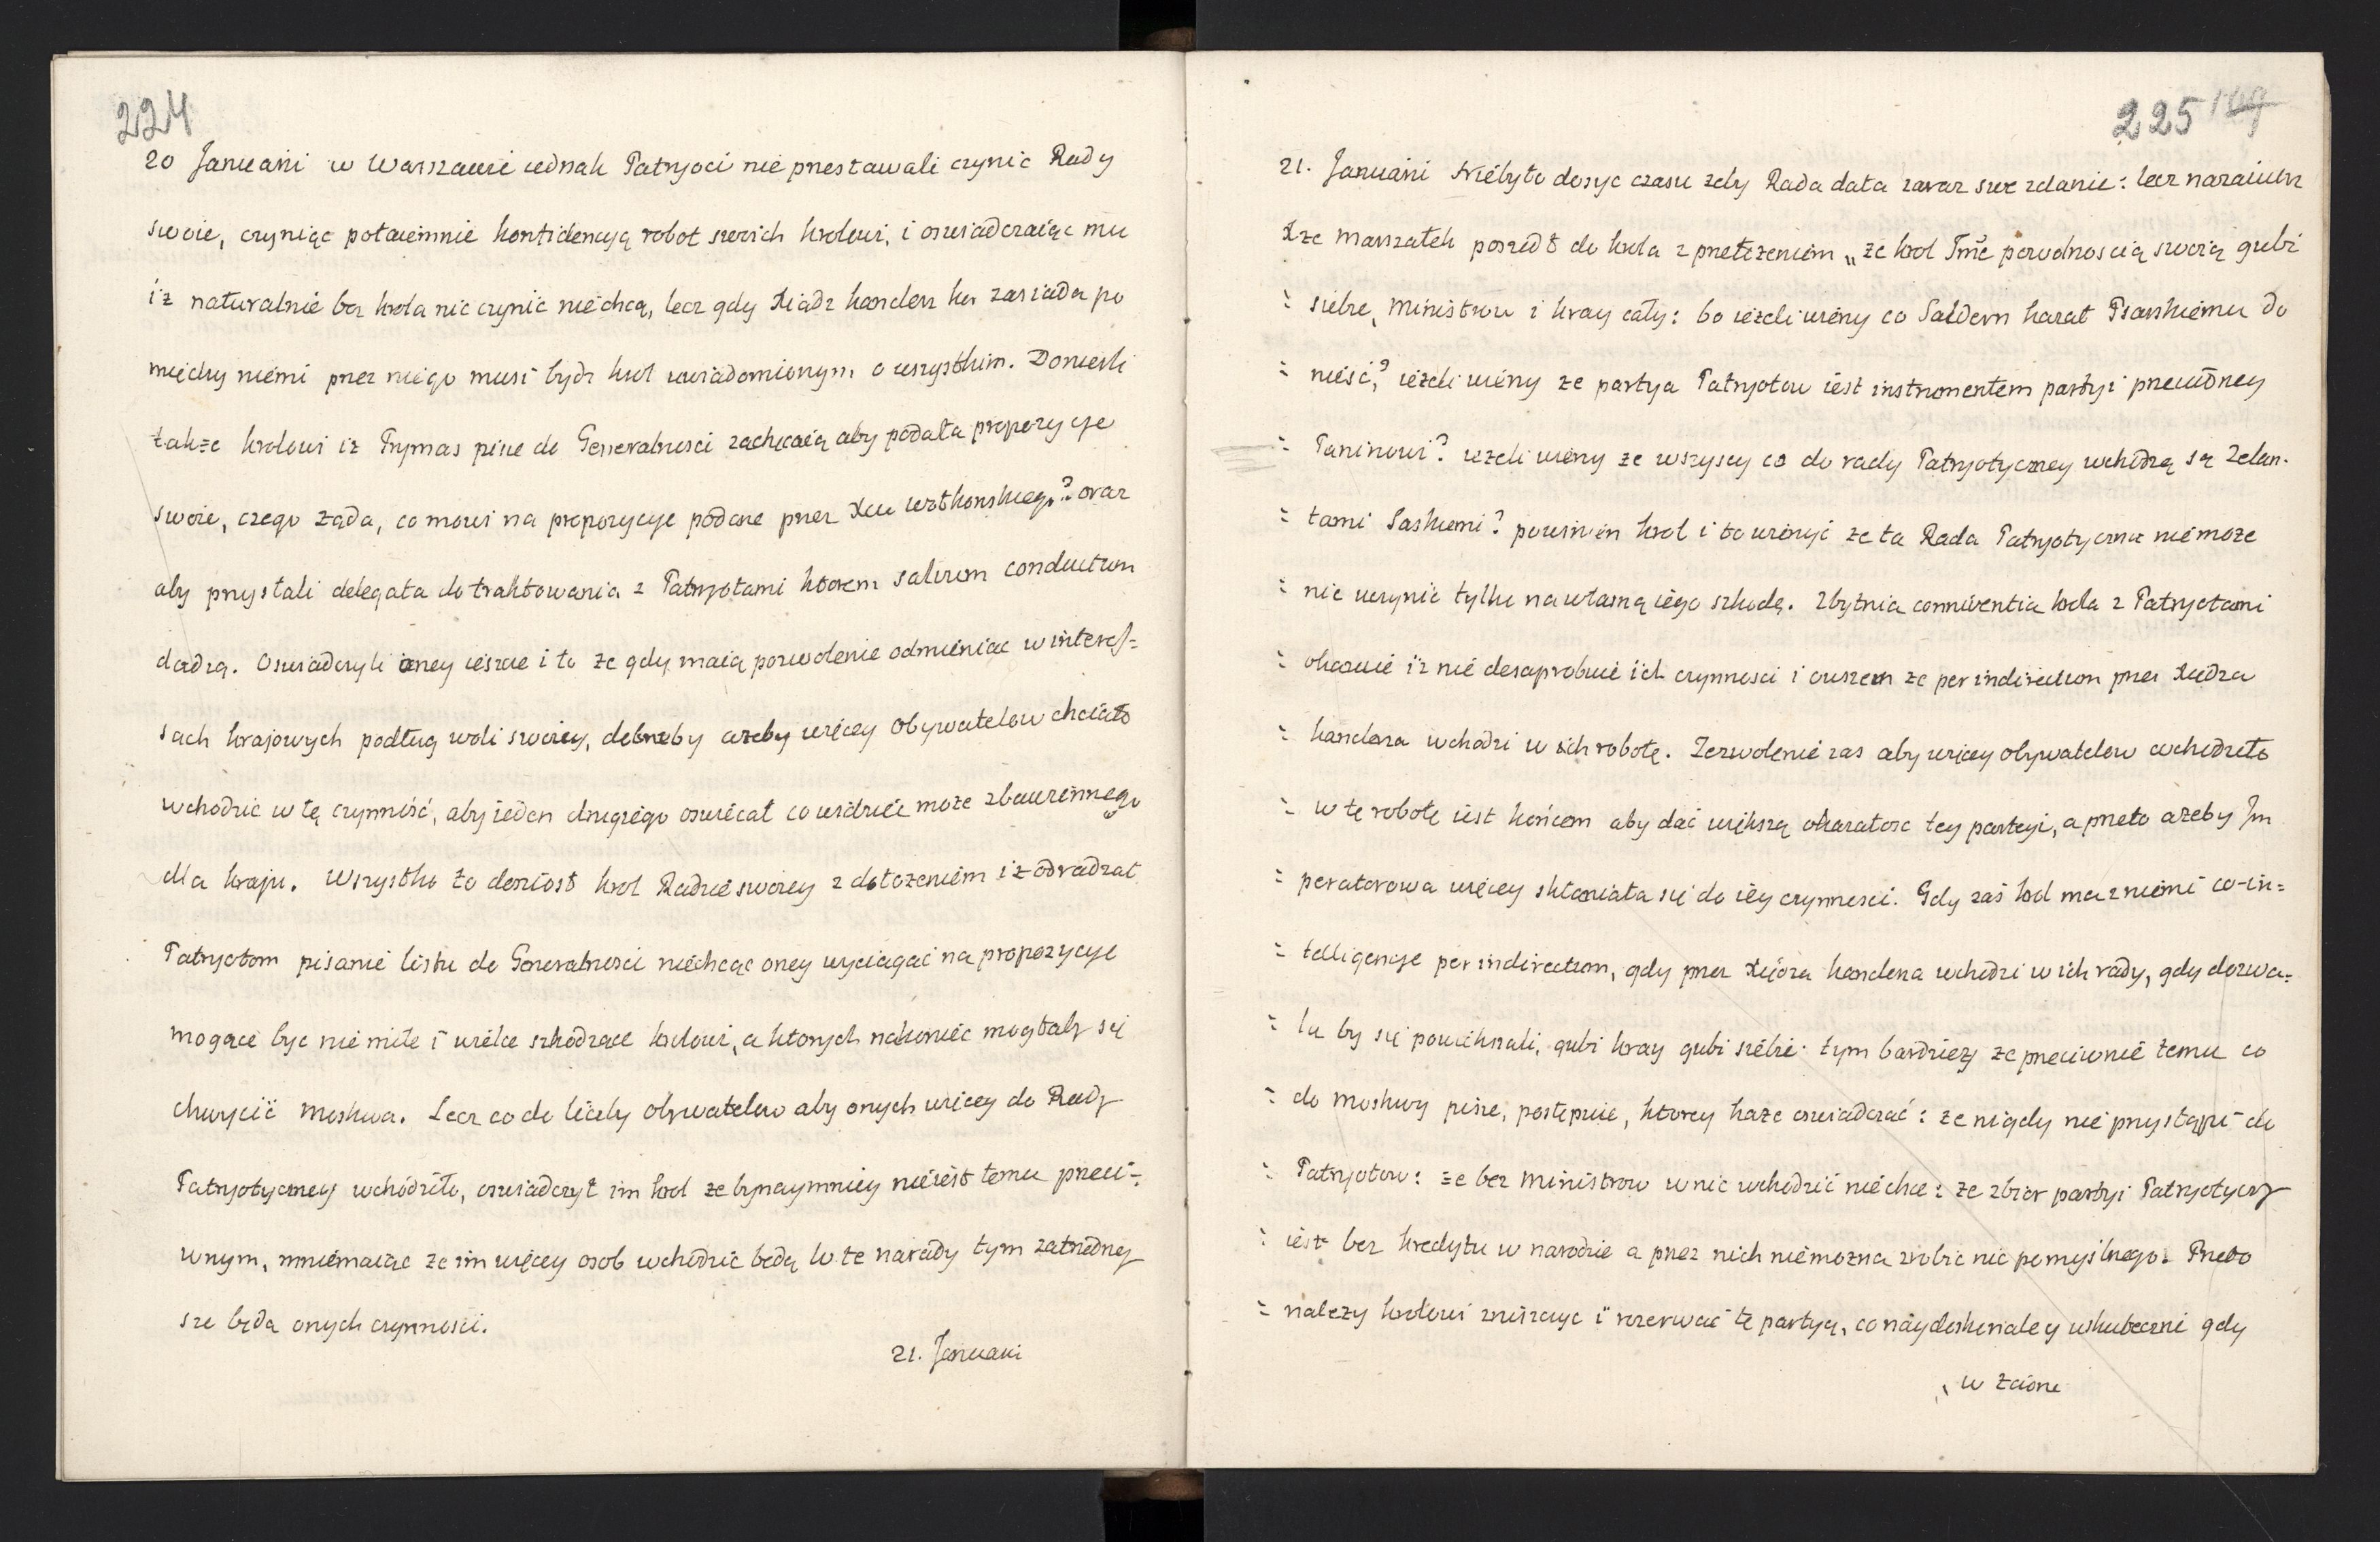 224
20 Januarii w Warszawie iednak Patryoci nie przestawali czynic Rady
swoie, czyniąc potaiemnie konfidencyą robot swoich krolowi, i oswiadczaiąc mu
iz naturalnie bez krola nic czynic niechcą, lecz gdy Xiądz kanclerz kor zasiada po
między niemi przez niego musi bydz krol uwiadomionym o wszystkim. Doniesli
takze krolowi iz Prymas pisze do Generalnosci zachęcaią aby podała propozycye
swoie, czego ząda, co mowi na propozycye podane przez Xcia wołkonskiego? oraz
aby przystali delegata do traktowania z Patryotami ktorem salvum conductum
dadzą. Oswiadczyli oney ieszcze i to ze gdy maią pozwolenie odmieniac w interess=
sach krajowych podług woli swoiey, dobrzeby azeby więcey Obywatelow chciało
wchodzic w tę czynność, aby ieden drugiego oswiecał co widziec moze zbawiennego
dla kraju. Wszystko to doniosł krol Radzie swoiey z dołozeniem iz odradzał
Patryotom pisanie listu do Generalnosci niechcąc oney wyciągać na propozycye
mogące byc nie miłe i wielce szkodzące krolowi, a ktorych nakoniec mogłaby się
chwycić moskwa. Lecz co do liczby obywatelow aby onych więcey do Rady
Patryotyczney wchodziło, oswiadczył im krol ze bynaymniey nieiest temu przeci=
wnym, mniemaiąc ze im więcey osob wchodzic będą w te narady tym zatrudney
sze będą onych czynnosci.
21. Januarii
225 149
21. Januarii Niebyło dosyc czasu zeby Rada dała zaraz swe zdanie: lecz nazaiutrz
Xze marszałek poszedł do krola z przełozeniem „ze krol Jmć powolnoscią swoią gubi
= siebie, Ministrow i kray cały: bo iezeli wiemy co Saldern kazał Psarskiemu do
= niesć? iezeli wiemy ze partya Patryotow iest instrumentem partyi przeciwney
= Paninowi? iezeli wiemy ze wszyscy co do rady Patryotyczney wchodzą są Zelan-
= tami Saskiemi? powinien krol i to wiedzieć ze ta Rada Patryotyczna niemoze
= nic uczynic tylko na własną iego szkodę. Zbytnia conniventia krola z Patryotami
= okazuie iz nie desaprobuie ich czynnosci i owszem ze per indirectum przez Xiędza
= kanclerza wchodzi w ich robotę. Zezwolenie zas aby więcey obywatelow wchodziło
= w tę robotę iest końcem aby dać większą okazałosc tey partyi, a przeto azeby Im
= peratorowa więcey skłaniała się do iey czynnosci. Gdy zaś krol ma z niemi co-in=
= telligencye per indirectum, gdy przez Xiędza kanclerza wchodzi w ich rady, gdy dozwa=
= la by się powiększali, gubi kray gubi siebie: tym bardziey ze przeciwnie temu co
= do moskwy pisze, postępuie, ktorey kaze oswiadczać: ze nigdy nie przystąpi do
= Patryotow: ze bez Ministrow w nic wchodzić niechce: ze zbior partyi Patryotyczy
= iest bez kredytu w narodzie a przez nich niemozna zrobic nic pomyslnego. Przeto
= nalezy krolowi zniszczyc i rozerwać tę partyą, co naydoskonaley uskuteczni gdy